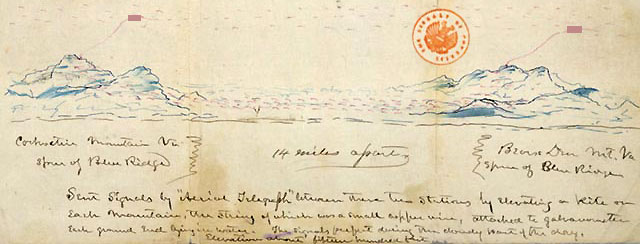 THE LIBRARY OF CONGRESS
Cohocton Mountain Va
Spur of Blue Ridge
14 miles apart
Bear's Den Mt. Va
Spur of Blue Ridge
Sent signals by "Aerial Telegraph" between these two stations by elevating a kite on
each mountain, the string of which was a small copper wire, attached to galvanometer
each ground end lying in water. The signals perfect during the cloudy part of the day.
Elevation about fifteen hundred feet